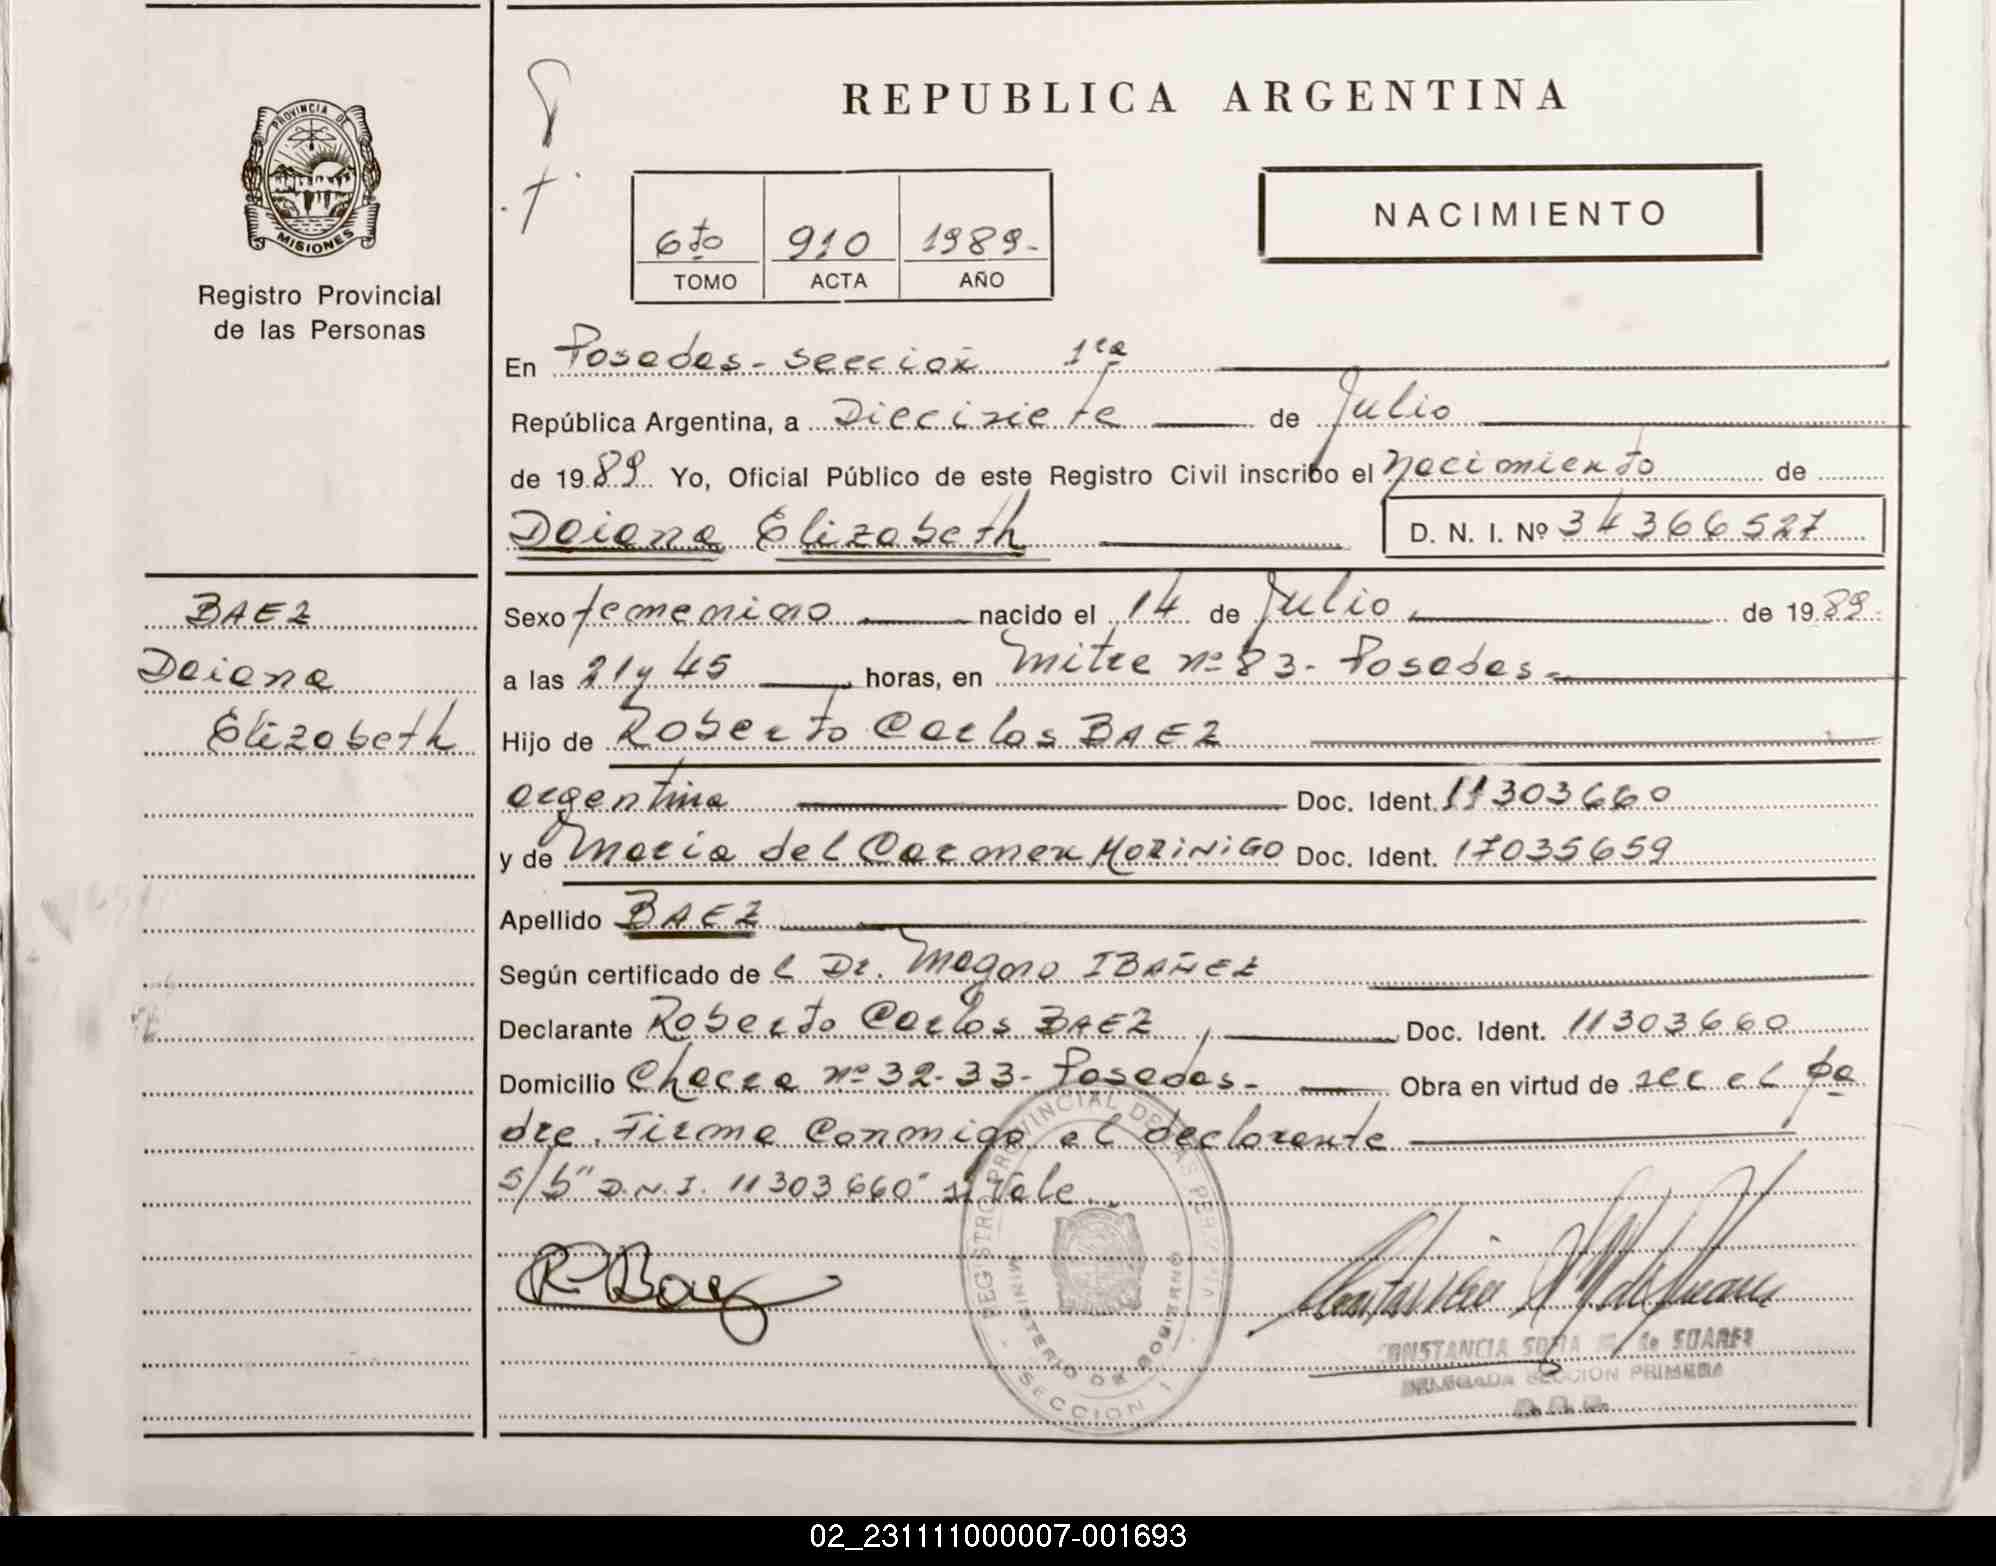 REPUBLICA ARGENTINA
PROVINCIA DE
MISIONES
Registro Provincial
de las Personas
6to 910 1989-
TOMO ACTA AÑO
NACIMIENTO
En Posadas - sección 1ra
República Argentina, a Diecisiete de Julio
de 1989 Yo, Oficial Público de este Registro Civil inscribo el nacimiento de
Daiana Elizabeth D. N. I. Nº 34366527
BAEZ
Daiana
Elizabeth
Sexo femenino nacido el 14 de Julio de 1989.
a las 21 y 45 horas, en Mitre nº 83 - Posadas -
Hijo de Roberto Carlos BAEZ
argentina Doc. Ident. 11303660
y de Maria del Carmen MORINIGO Doc. Ident. 17035659
Apellido BAEZ
Según certificado del Dr. Magno IBAÑEZ
Declarante Roberto Carlos BAEZ, Doc. Ident. 11303660
Domicilio Chacra nº 32-33- Posadas- Obra en virtud de ser el pa
dre. Firma conmigo el declarante
S/b "D.N.I. 11303660" si Vale.
R Baez
REGISTRO PROVINCIAL DE LAS PERSONAS
MINISTERIO DE GOBIERNO
SECCION 1
CONSTANCIA SOFIA M. de SUAREZ
DELEGADA SECCION PRIMERA
02_231111000007-001693